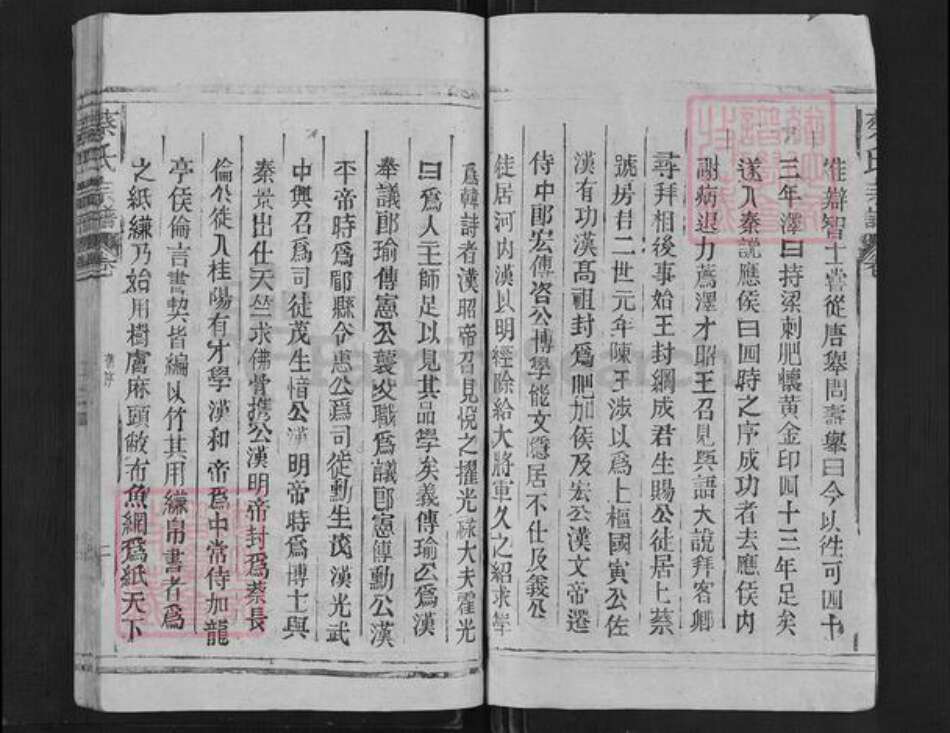 惟辯智士嘗從唐舉問壽舉曰今以徃可四十
三年澤曰持梁刺肥懷黃金印四十三年足矣
遂入秦說應侯曰四時之序成功者去應侯內
謝病退力薦澤才昭王召見與語大說拜客卿
尋拜相後事始王封綱成君生賜公徒居上蔡
號房君二世元年陳王涉以為上樞國寅公佐
漢有功漢高祖封為肥加侯及宏公漢文帝遷
侍中郎宏傳咨公博學能文隱居不仕及義公
徒居河內漢以明經除給大將軍久之紹求學
爲韓詩者漢昭帝召見悅之擢光祿大夫霍光
曰爲人主師足以見其品學矣義傳瑜公爲漢
奉議郎瑜傳憲公襲父職爲議郎憲傳勳公漢
平帝時爲郿縣令惠公爲司徒勳生茂漢光武
中興召爲司徒茂生愔公漢明帝時爲博士與
秦景出仕天竺求佛骨携公漢明帝封爲蔡長
倫公徒入桂陽有才學漢和帝爲中常侍加龍
亭侯倫言書契皆編以竹其用縑帛書者爲
之紙縑乃始用樹膚麻頭敝布魚網爲紙天下
蔡氏宗譜